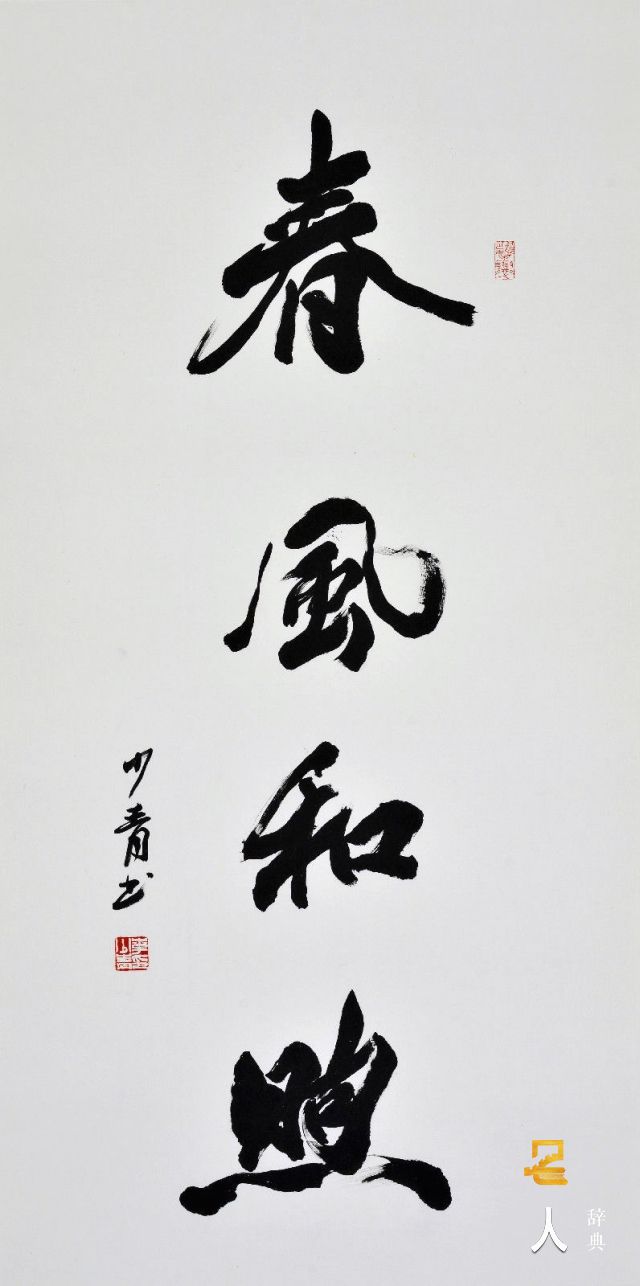 春風和煦
少青书
人
辞典